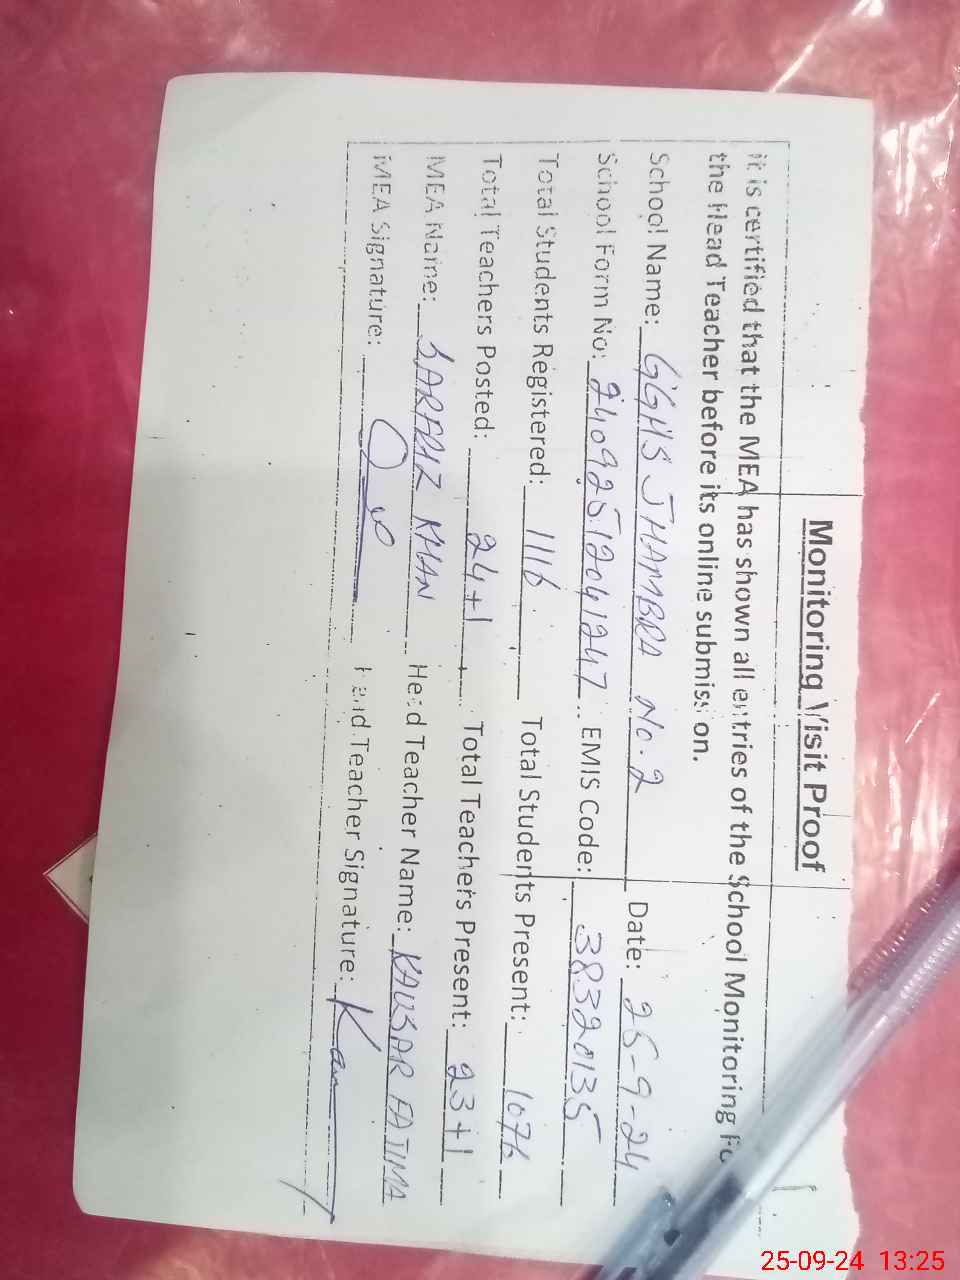 Monitoring Visit Proof
It is certified that the MEA has shown all entries of the School Monitoring Fo
the Head Teacher before its online submission.
School Name: GGHS JHAMBRA No.2 Date: 25-9-24
School Form No: 240925120411247 EMIS Code: 38320135
Total Students Registered: 1116 Total Students Present: 1076
Total Teachers Posted: 24+1 Total Teachers Present: 23+1
MEA Name: SARFRAZ KHAN Head Teacher Name: KAUSAR FATIMA
MEA Signature: Head Teacher Signature:
25-09-24 13:25